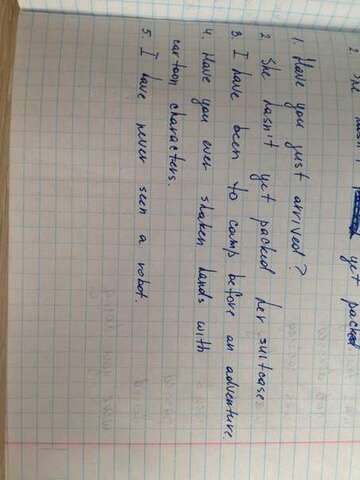 yet packed
1. Have you just arrived?
2 She hasn't yet packed her suitcase.
3 I have been to camp before an adventure.
4. Have you ever shaken hands with
cartoon characters.
5. I have never seen a robot.